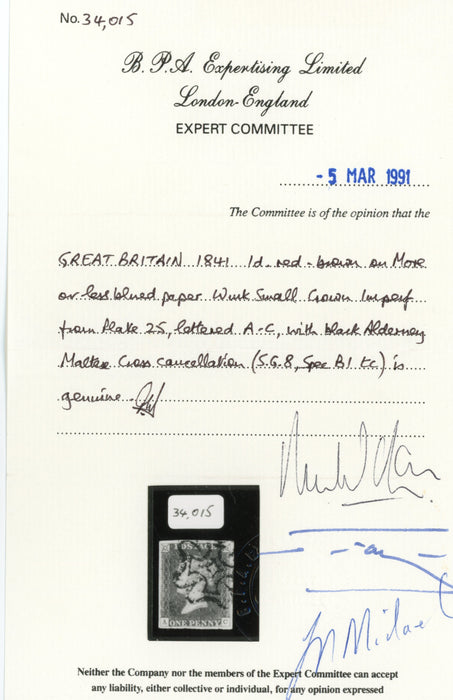 No. 34,015
B. P. A. Expertising Limited
London-England
EXPERT COMMITTEE
- 5 MAR 1991
The Committee is of the opinion that the
GREAT BRITAIN 1841 1d red-brown on More
or less blued paper Wmk Small Crown Imperf
from Plate 25, lettered A-C, with black Alderney
Maltese Cross cancellation (S.G.8, Spec B1 tc) is
genuine.
34,015
POSTAGE
ONE PENNY
A C
Neither the Company nor the members of the Expert Committee can accept
any liability, either collective or individual, for any opinion expressed